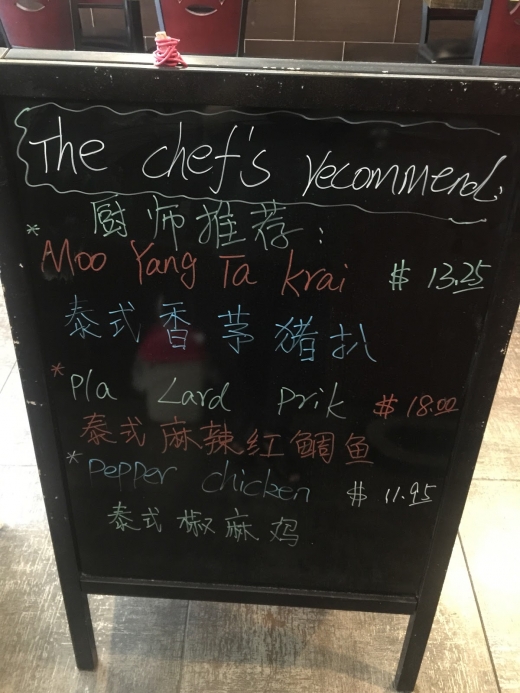 The chef's recommend:
厨师推荐:
* Moo Yang Ta krai $ 13.25
泰式香茅猪扒
* Pla Lard Prik $ 18.00
泰式麻辣红鲷鱼
* Pepper chicken $ 11.95
泰式椒麻鸡